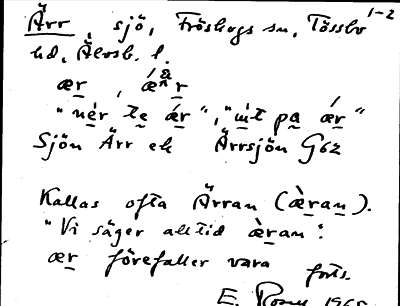 1-2
Ärr, sjö, Fröskogs sn, Tössbo
hd, Älvsb. l.
ær, æ̀ʀr
"nér te ǽr", "út pa ǽr"
Sjön Ärr ek Ärrsjön G62
Kallas ofta Ärran (æ̀ran).
"Vi säger alltid æ̀ran":
ær förefaller vara
forts.
E. 1965